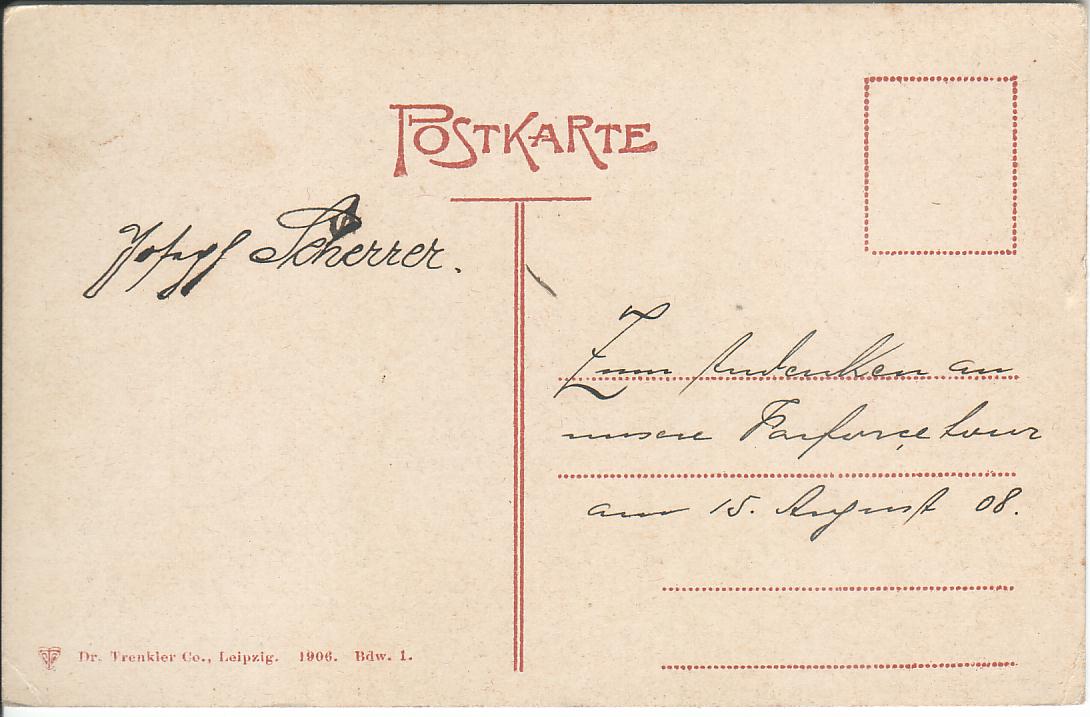 POSTKARTE
Joseph Scherrer.
Zum Andenken an
unsere Parforcetour
am 15. August 08.
Dr. Trenkler Co., Leipzig. 1906. Bdw. 1.